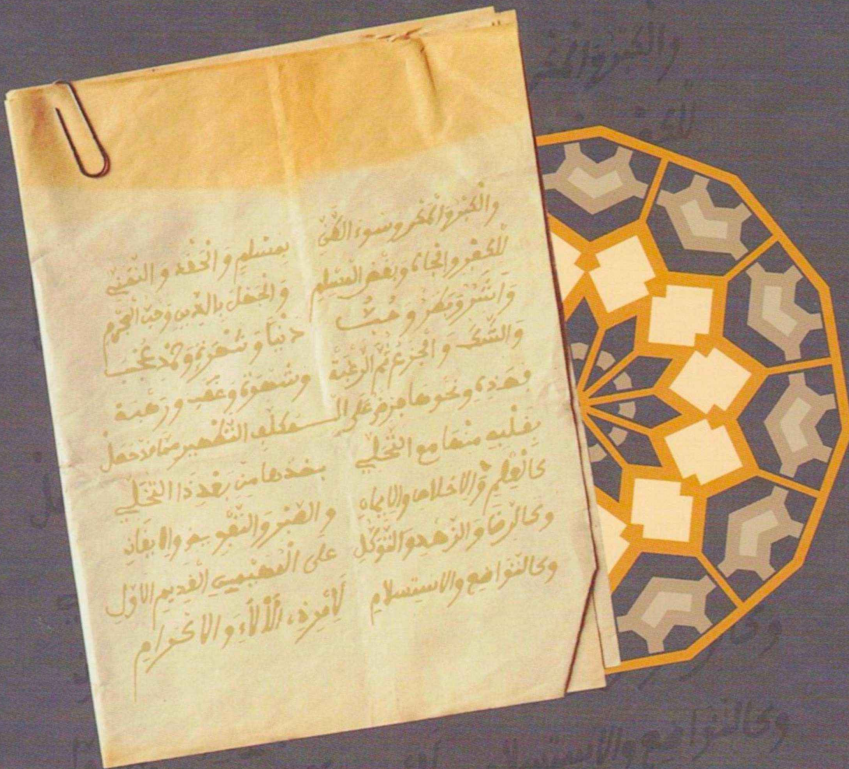 والكبر والمكر وسوء الظن بمسلم والحقد والتمني
للكفر والجاه وبغض المسلم والجهل بالدين وحب المجرم
وأشر وبطر وحب دنيا وشهرة وحمد عجب
والشك والجزع ثم الرغبة وشهوة وغضب ورهبة
فهذه ونحوها على الـ ـمكلف التطهير مما قد حصل
بقلبه منها مع التخلي بضدها من بعد ذا التحلي
كالعلم والاخلاص والايمان والصبر والتفويض والايقان
وكالرضا والزهد والتوكل على المهيمن القديم الاول
وكالتواضع والاستسلام لأمر ذي الألاء والاكرام
والكبر والمكر
للكفر
وكالتواضع والاستسلام